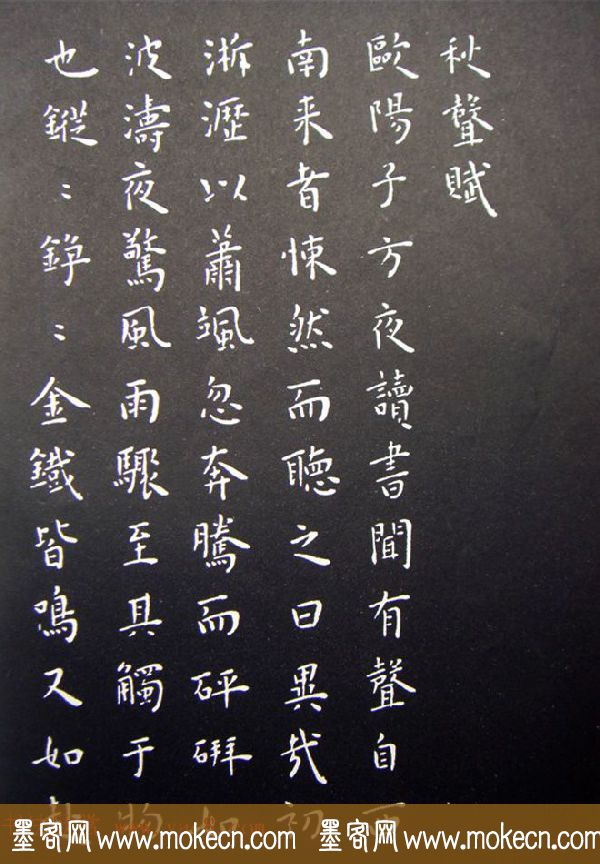 秋聲賦
歐陽子方夜讀書聞有聲自西
南来者悚然而聽之曰異哉初
淅瀝以蕭颯忽奔騰而砰如
波濤夜驚風雨驟至其觸于物
也鏦〻錚〻金鐵皆鳴又如赴
墨客网 www.mokecn.com 墨客网 www.mokecn.com